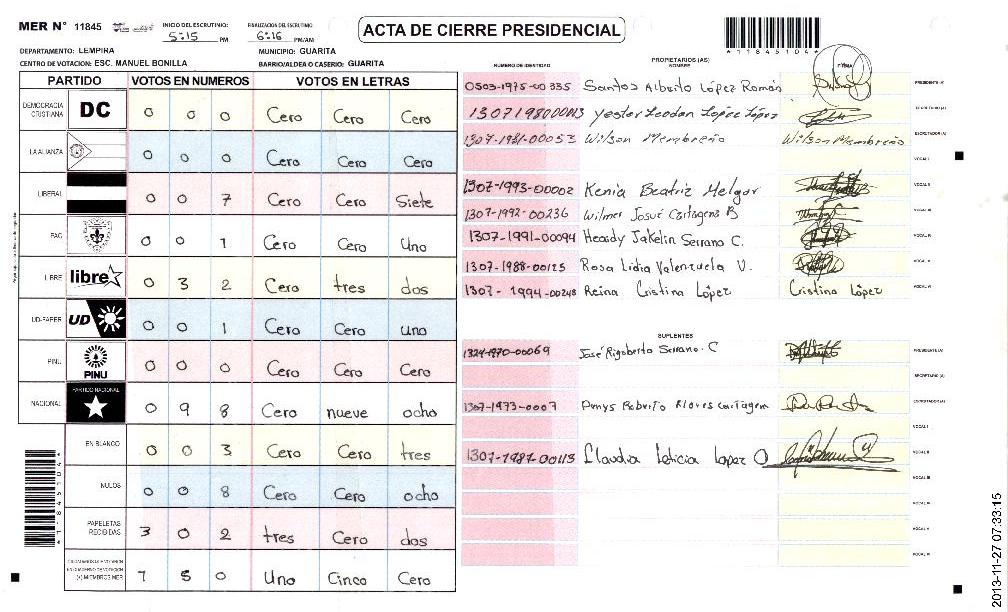 MER N° 11845
INICIO DEL ESCRUTINIO: 5:15 PM
FINALIZACION DEL ESCRUTINIO 6:16 PM/AM
ACTA DE CIERRE PRESIDENCIAL
*11845104*
DEPARTAMENTO: LEMPIRA
MUNICIPIO: GUARITA
CENTRO DE VOTACION: ESC. MANUEL BONILLA
BARRIO/ALDEA O CASERIO: GUARITA
PARTIDO VOTOS EN NUMEROS VOTOS EN LETRAS
DEMOCRACIA CRISTIANA DC 0 0 0 Cero Cero Cero
LA ALIANZA 0 0 0 Cero Cero Cero
LIBERAL 0 0 7 Cero Cero Siete
PAC 0 0 1 Cero Cero Uno
LIBRE libre 0 3 2 Cero tres dos
UD-FAPER UD 0 0 1 Cero Cero uno
PINU PINU 0 0 0 Cero Cero Cero
NACIONAL PARTIDO NACIONAL 0 9 8 Cero nueve ocho
EN BLANCO 0 0 3 Cero Cero tres
NULOS 0 0 8 Cero Cero ocho
PAPELETAS RECIBIDAS 3 0 2 tres Cero dos
(+) MIEMBROS MER 1 5 0 Uno Cinco Cero
PROPIETARIOS (AS)
NUMERO DE IDENTIDAD NOMBRE FIRMA
0503-1975-00335 Santos Alberto López Román PRESIDENTE (A)
Yester Leodan López López SECRETARIO (A)
1307-1981-00053 Wilson Membreño Wilson Membreño ESCRUTADOR (A)
VOCAL I
1307-1993-00002 Kenia Beatriz Melgar VOCAL II
1307-1992-00236 Wilmer Josué Cartagena B VOCAL III
1307-1991-00094 Heady Jakelin Serrano C. VOCAL IV
1307-1988-00125 Rosa Lidia Valenzuela V. VOCAL V
1307-1994-00248 Reina Cristina López Cristina López VOCAL VI
SUPLENTES
1324-1970-00069 José Rigoberto Serrano C PRESIDENTE (A)
SECRETARIO (A)
1307-1973-0007 Roberto Flores Cartagena ESCRUTADOR (A)
VOCAL I
1307-1987-00113 Claudia Leticia Lopez O VOCAL II
VOCAL III
VOCAL IV
VOCAL V
VOCAL VI
2013-11-27 07:33:15